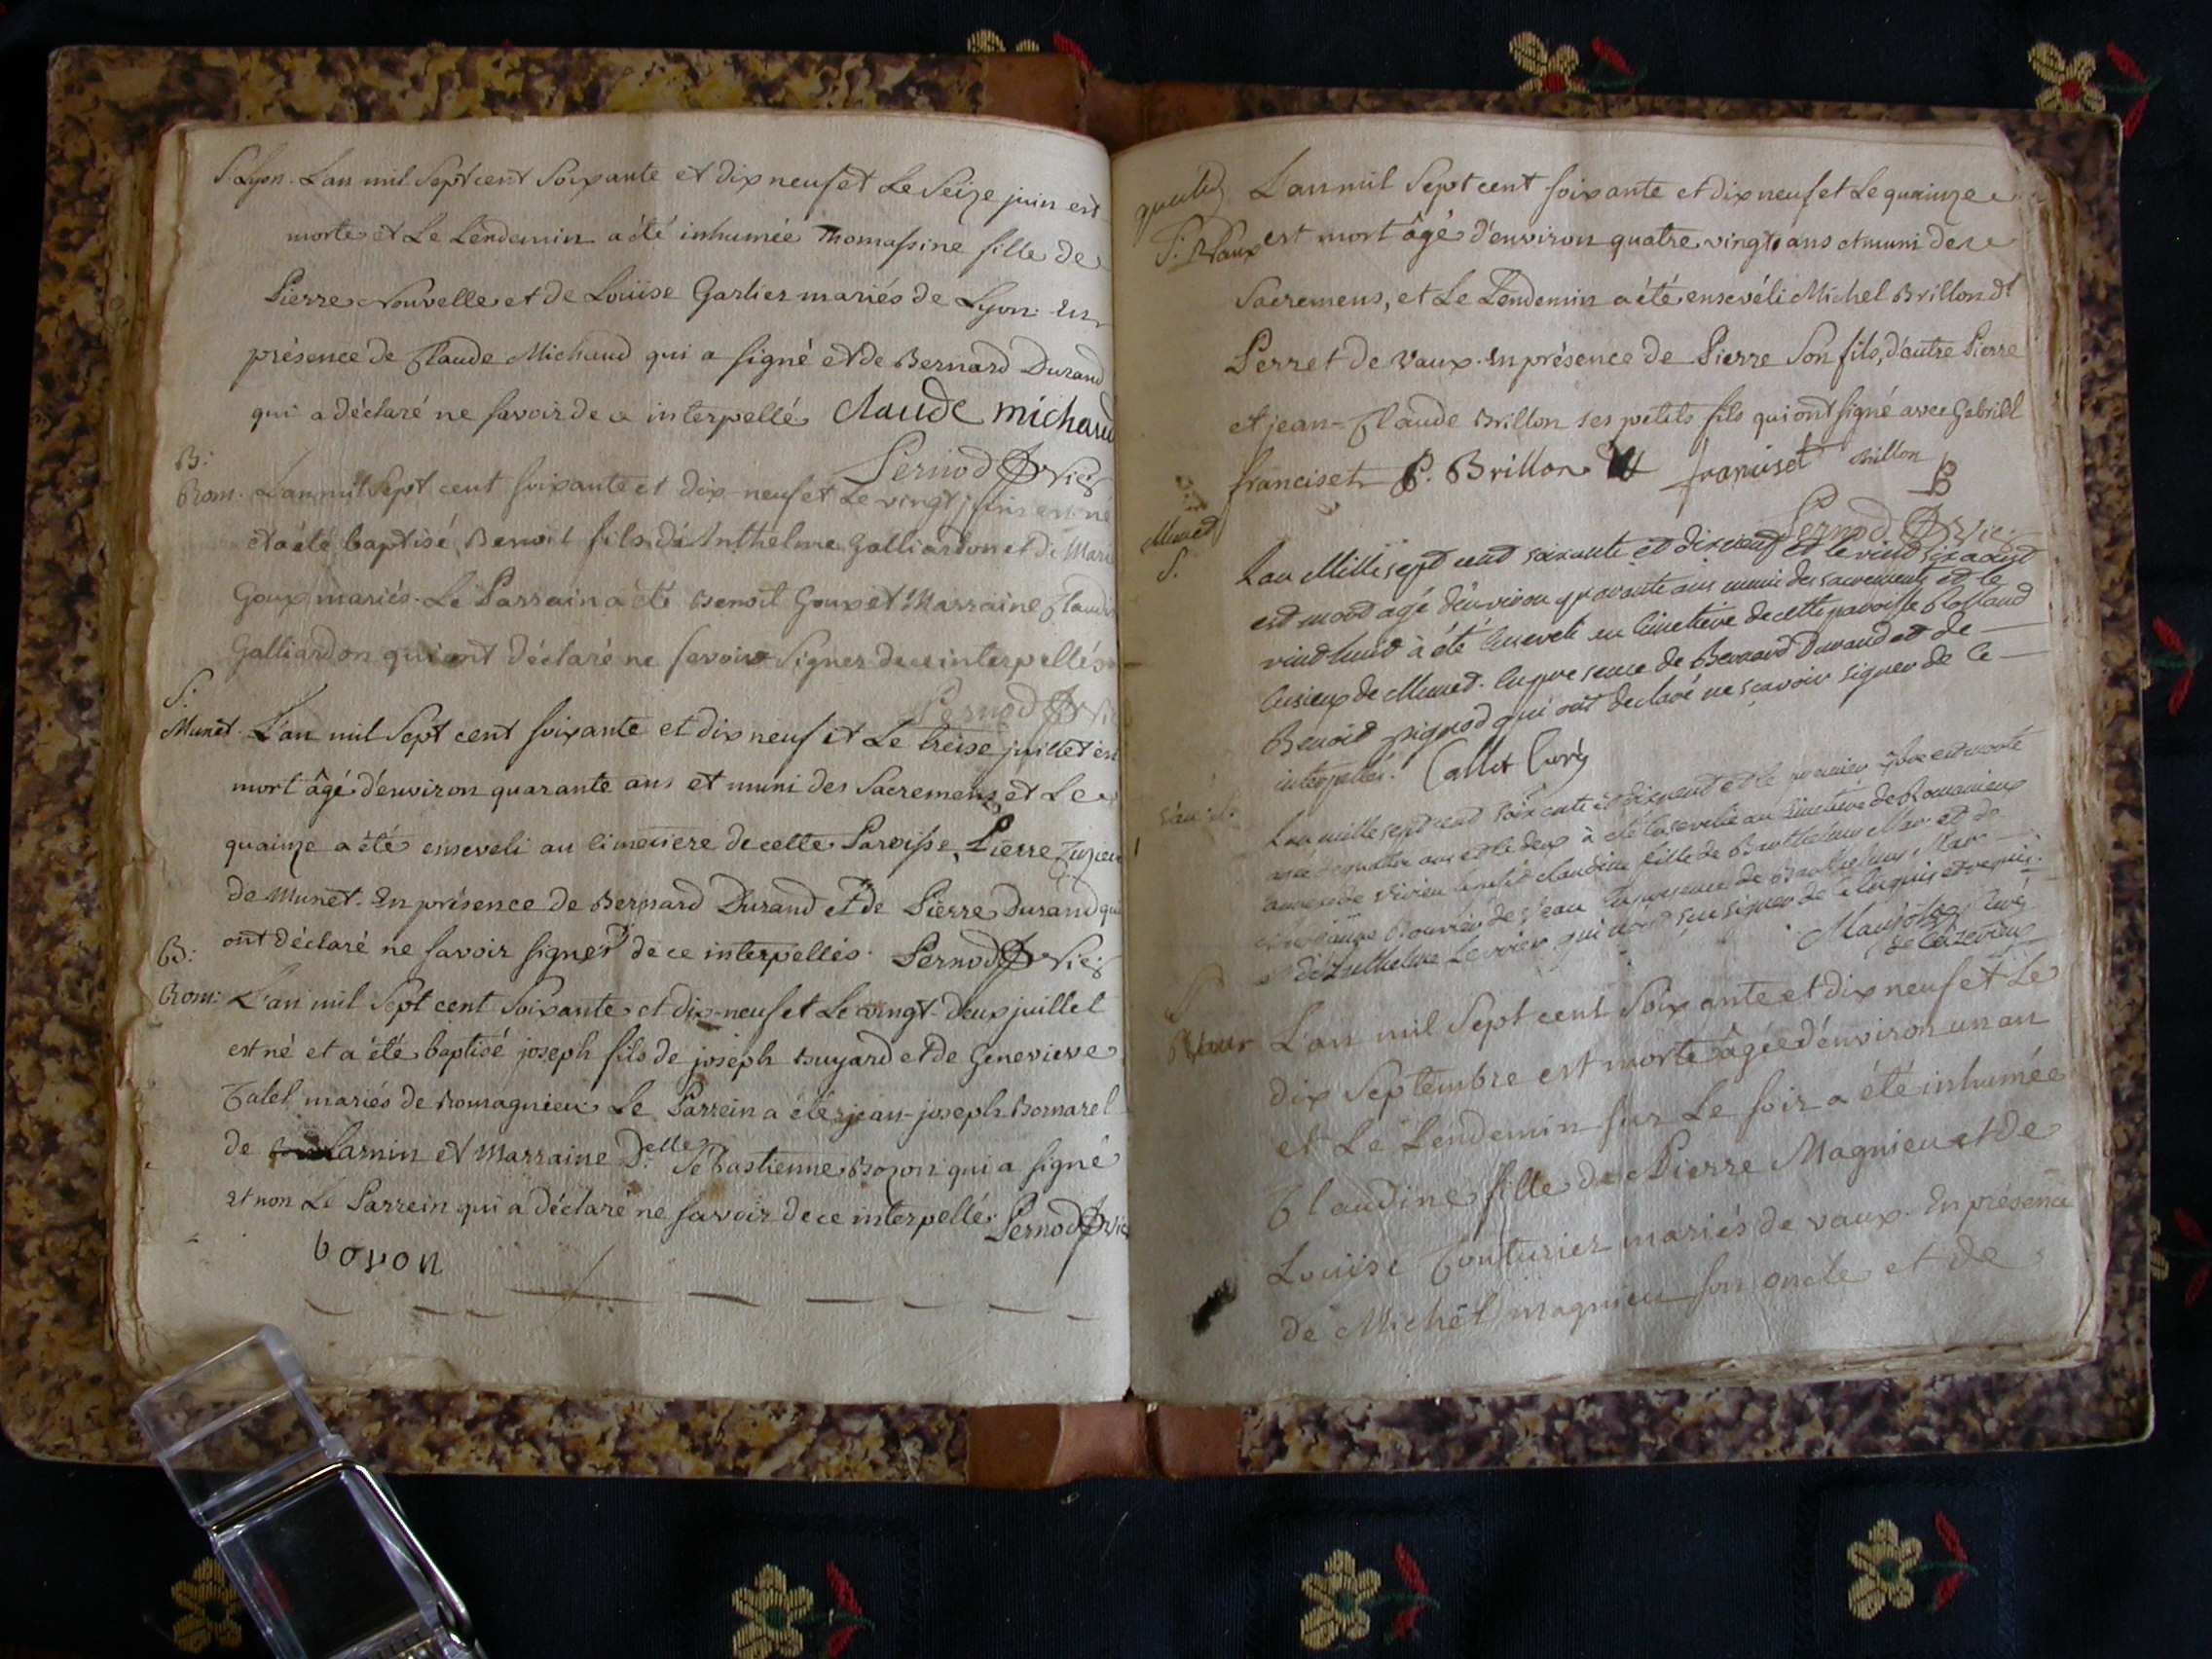 S. Lyon. L'an mil Sept cent Soixante et dix neuf et Le Seize juin est
morte et Le Lendemin a été inhumée Thomassine fille de
Pierre Nouvelle et de Loüise Garlier mariés de Lyon. En
présence de Claude Michaud qui a signé et de Bernard Durand
qui a déclaré ne savoir de ce interpellé Claude michaud
Pernod Vic
B:
Rom. L'an mil Sept cent soixante et dix-neuf et Le vingt juin est né
et a été baptisé Benoit fils d'Anthelme Galliardon et de Marie
Goux mariés. Le Parrain a été Benoit Goux et Marraine Claudi
Galliardon qui ont déclaré ne savoir signer de ce interpellés
Pernod Vic
S:
Munet. L'an mil Sept cent soixante et dix neuf et Le treise juillet est
mort âgé d'environ quarante ans et muni des Sacremens et Le
quainze a été enseveli au cimetiere de cette Paroisse, Pierre
de Munet. En présence de Bernard Durand et de Pierre Durand qui
ont déclaré ne savoir signer de ce interpellés. Pernod Vic
B:
Rom: L'an mil Sept cent Soixante et dix-neuf et Le vingt-deux juillet
est né et a été baptisé joseph fils de joseph Guyard et de Genevieve
Catel mariés de Romagnieu Le Parrein a été jean-joseph Bornarel
de Larnin et Marraine Delle Sébastienne Boyon qui a signé
et non Le Parrein qui a déclaré ne savoir de ce interpellé. Pernod Vic
boyon
L'an mil Sept cent soixante et dix neuf et Le quainze
S. Vaux est mort âgé d'environ quatre vingt ans et muni des
Sacremens, et Le Lendemin a été enseveli Michel Brillon dt
Perret de Vaux. En présence de Pierre Son fils, d'autre Pierre
et jean-Claude Brillon ses petits fils qui ont signé avec Gabriel
franciset P. Brillon franciset Brillon B
Pernod Vic
Munet
S. L'an Mille sept cent soixante et dix neuf et le vint six aoust
est mort agé d'environ quarante ans muni des sacrements et le
vint huit à été enseveli au Cimetiere de cette paroisse Rolland
de Munet. En presence de Bernard Durand et de
Benoit pignod qui ont declaré ne sçavoir signer de ce
interpellés. Callet Curé
L'an mille sept cent soixante et dix neuf et le premier 7bre est morte
agée de quatre ans et le deux à été ensevelie au Cimetiere de Romanieux
claudine fille de Barthelemy Mar et de
Bouvier de en presence de Barthelemy Mar
et d'Anthelme qui n'ont sçu signer de ce enquis et requis.
Curé
S
Vaux L'an mil Sept cent Soixante et dix neuf et Le
dix Septembre est morte âgée d'environ un an
et Le Lendemin sur Le soir a été inhumée
Claudine fille de Pierre Magnieu et de
Loüise Couturier mariés de vaux. En présence
de Michel magnieu son oncle et de